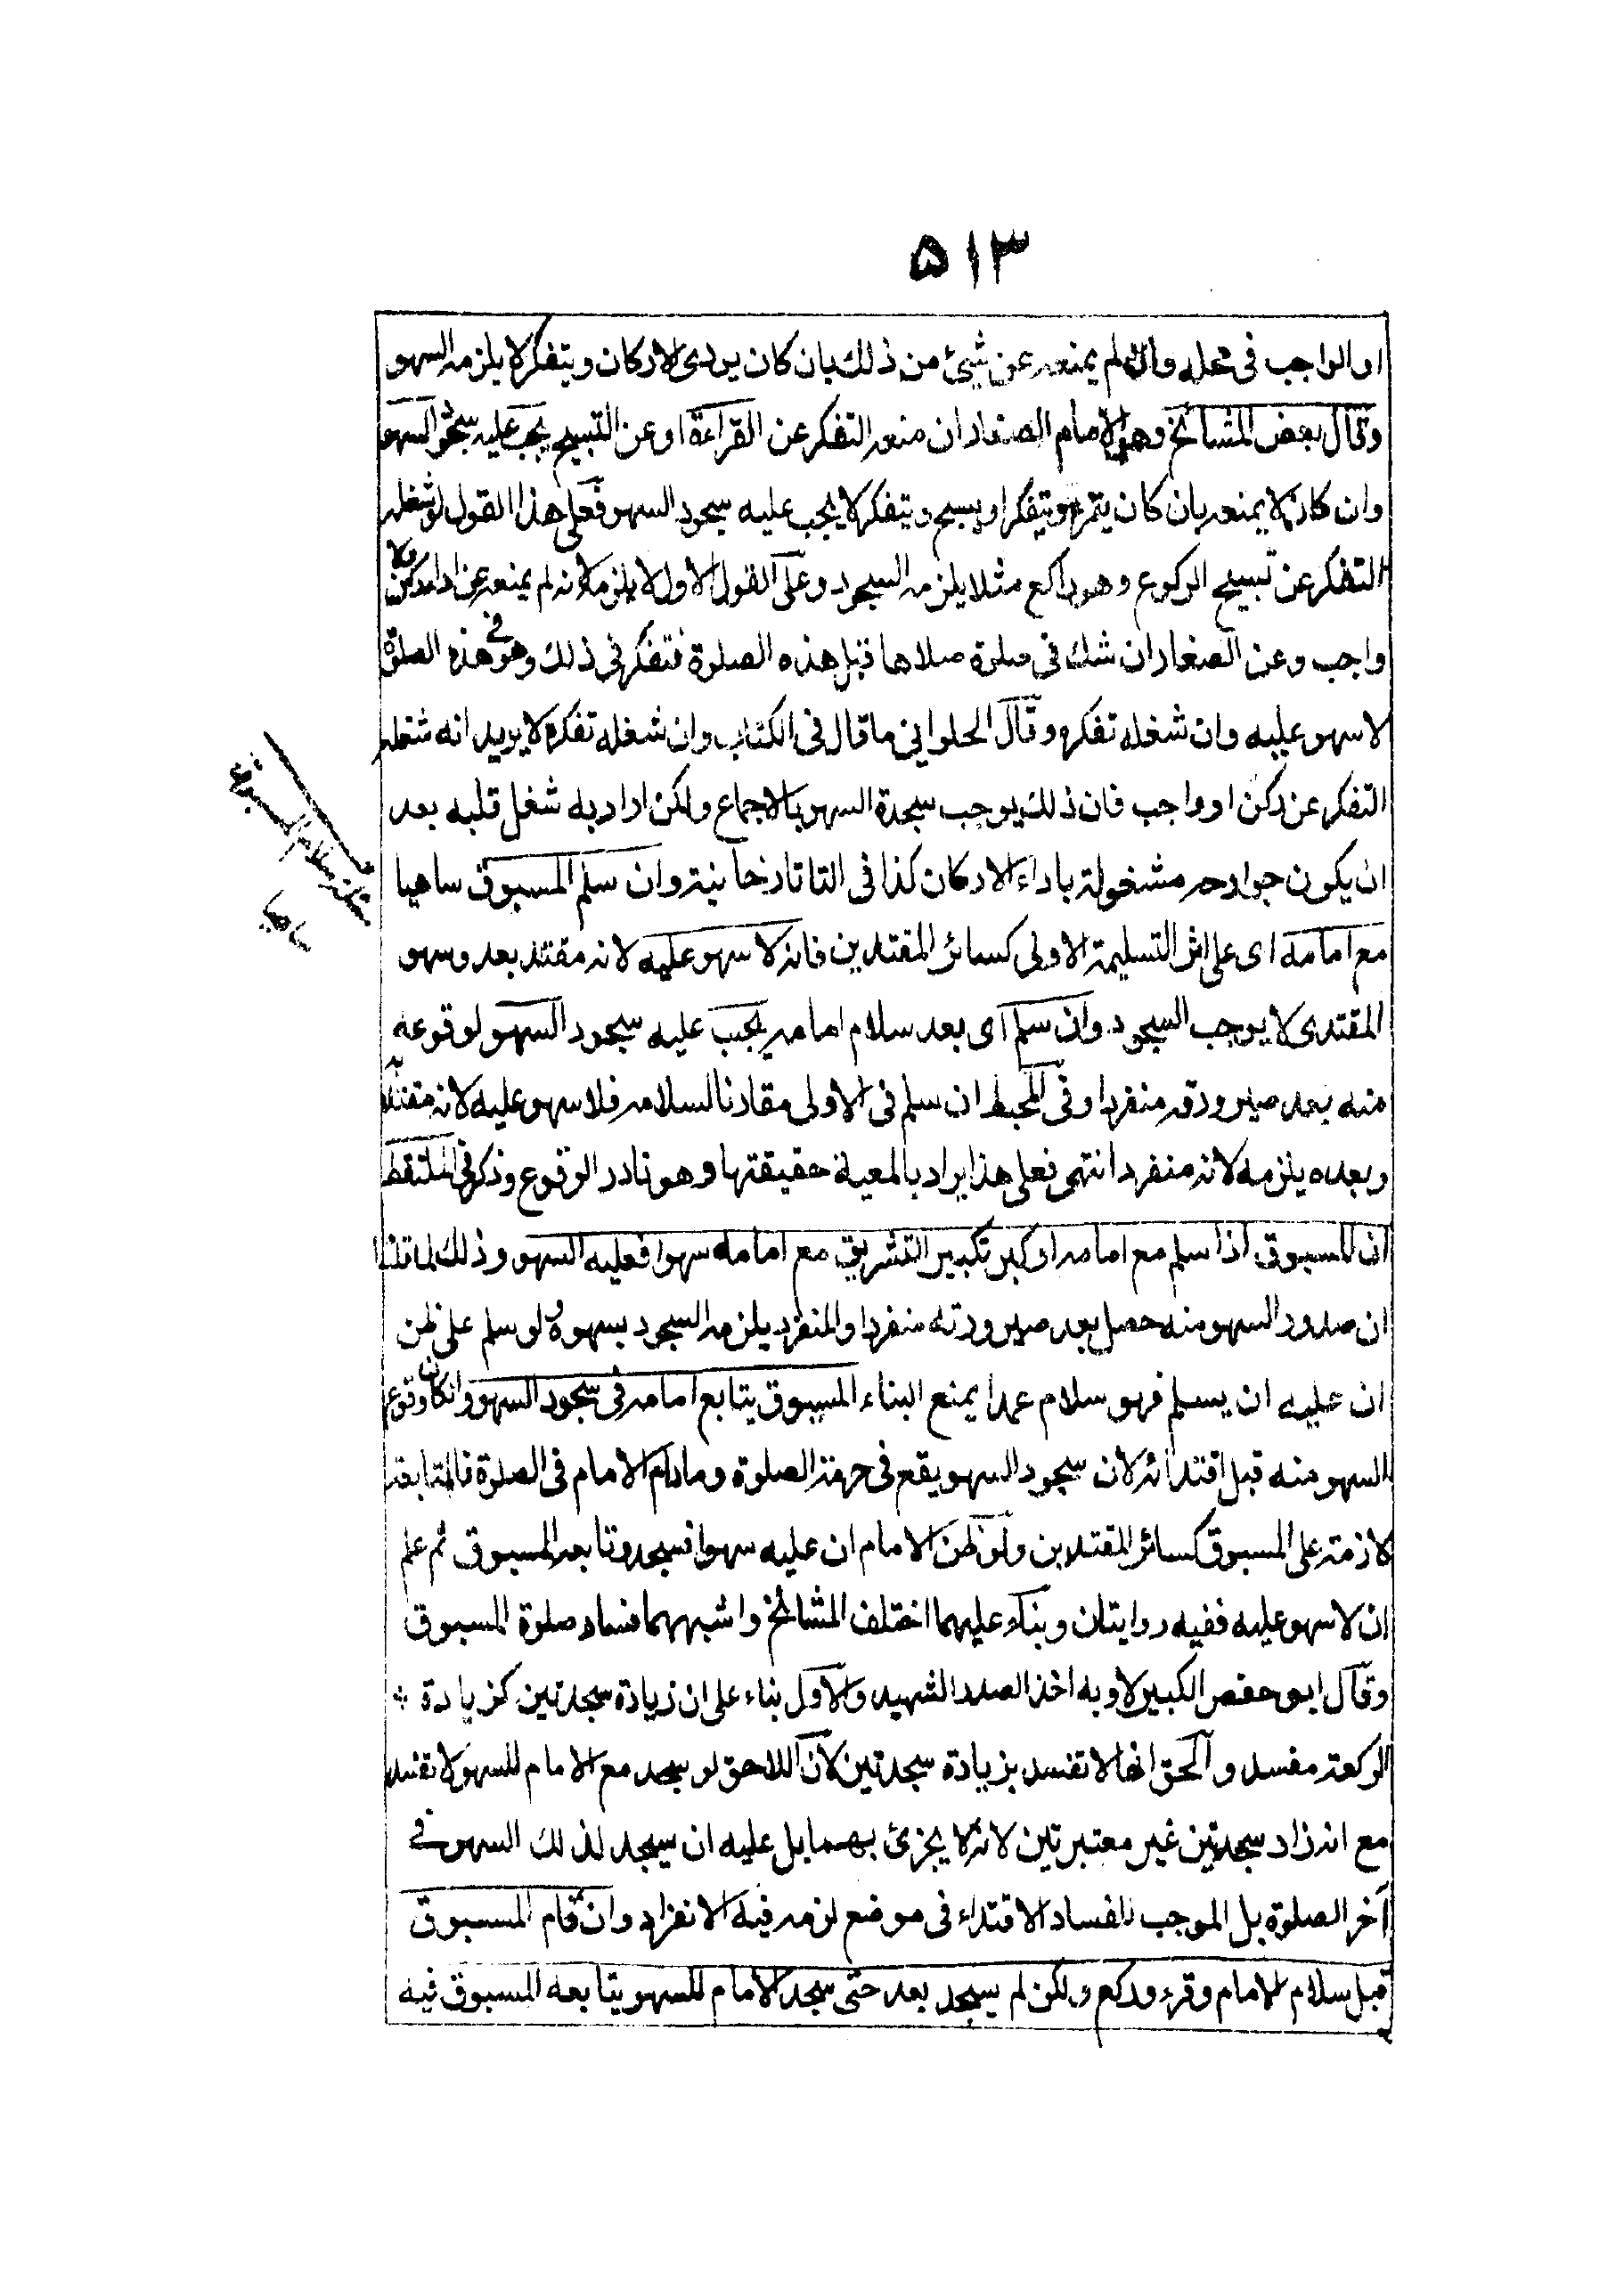 ۵۱۳
او الواجب في محله وان لم يمنعه عن شيئ من ذلك بان كان يودى الاركان ويتفكر لا يلزمه السهو
وقال بعض المشائخ وهو الامام الصفار ان منعه التفكر عن القراءة او عن التسبيح يجب عليه سجود السهو
وان كان لا يمنعه بان كان يقرء ويتفكر او يسبح ويتفكر لا يجب عليه سجود السهو فعلى هذا القول لو شغله
التفكر عن تسبيح الركوع وهو راكع مثلا يلزمه السجود وعلى القول الاول لا يلزمه لانه لم يمنعه عن اداء ركن ولا
واجب وعن الصفار ان شك في صلوة صلاها قبل هذه الصلوة فتفكر في ذلك وهو في هذه الصلوة
لا سهو عليه وان شغله تفكره وقال الحلواني ما قال في الكتاب وان شغله تفكره لا يريد انه شغله
التفكر عن ركن او واجب فان ذلك يوجب سجدة السهو بالاجماع ولكن اراد به شغل قلبه بعد
ان يكون جوارحه مشغولة باداء الاركان كذا في التاتارخانية وان سلم المسبوق ساهيا
مع امامه اى على اثر التسليمة الاولى كسائر المقتدين فانه لا سهو عليه لانه مقتد بعد وسهو
المقتدى لا يوجب السجود وان سلم اى بعد سلام امامه يجب عليه سجود السهو لوقوعه
منه بعد صيرورته منفردا وفي المحيط ان سلم في الاولى مقارنا لسلامه فلا سهو عليه لانه مقتد به
وبعده يلزمه لانه منفرد انتهى فعلى هذا يراد بالمعية حقيقتها وهو نادر الوقوع وذكر في الملتقط
ان المسبوق اذا سلم مع امامه او كبر تكبير التشريق مع امامه سهوا فعليه السهو وذلك لما قلنا
ان صدور السهو منه حصل بعد صيرورته منفردا والمنفرد يلزمه السجود بسهوه ولو سلم على ظن
ان عليه ان يسلم فهو سلام عمدا يمنع البناء المسبوق يتابع امامه في سجود السهو وان كان وقوع
السهو منه قبل اقتدائه لان سجود السهو يقع في حرمة الصلوة وما دام الامام في الصلوة فالمتابعة
لازمة على المسبوق كسائر المقتدين ولو ظن الامام ان عليه سهوا فسجد وتابعه المسبوق ثم علم
ان لا سهو عليه ففيه روايتان وبناء عليهما اختلف المشائخ واشبههما فساد صلوة المسبوق
وقال ابو حفص الكبير لا وبه اخذ الصدر الشهيد والاول بناء على ان زيادة سجدتين كزيادة *
الركعة مفسد والحق انها لا تفسد بزيادة سجدتين لان اللاحق لو سجد مع الامام للسهو لا تفسد
مع انه زاد سجدتين غير معتبرتين لانه لا يجزئ بهما بل عليه ان يسجد لذلك السهو في
آخر الصلوة بل الموجب للفساد الاقتداء في موضع لزمه فيه الانفراد وان قام المسبوق
قبل سلام الامام وقرء وركع ولكن لم يسجد بعد حتى سجد الامام للسهو يتابعه المسبوق فيه